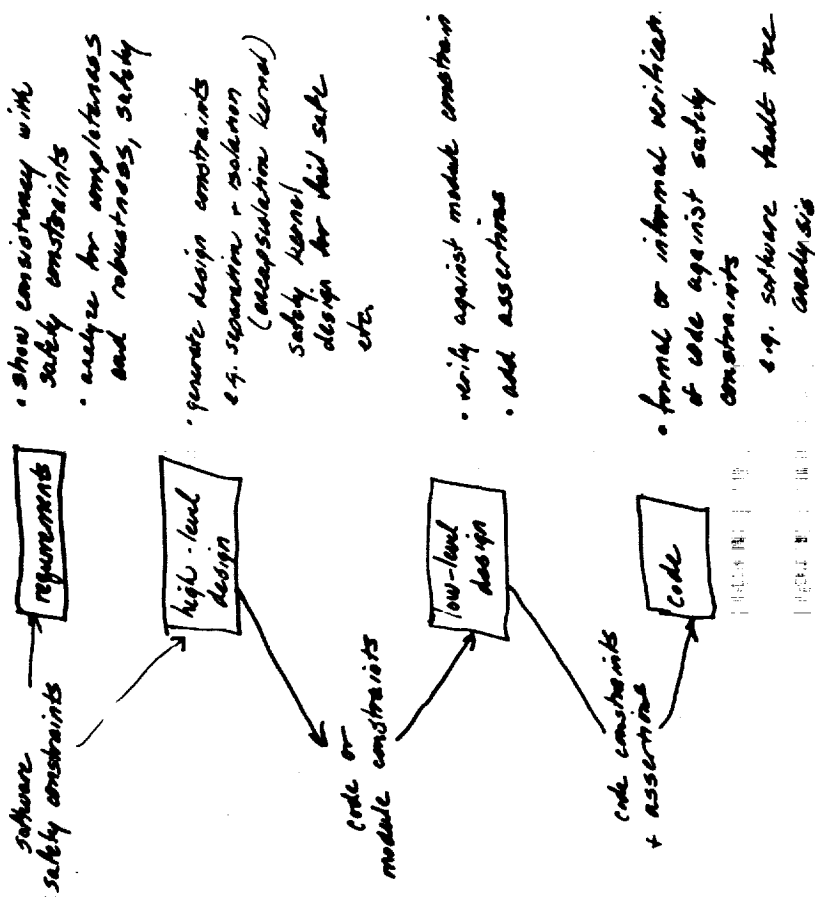 software
safety constraints
requirements
• show consistency with
safety constraints
• analyze for completeness
and robustness, safety
high-level
design
• generate design constraints
e.g. separation + isolation
(encapsulation kernel)
safety kernel
design for fail safe
etc.
code or
module constraints
low-level
design
• verify against module constrain
• add assertions
code constraints
+ assertions
code
• formal or informal verification
of code against safety
constraints
e.g. software fault tree
analysis